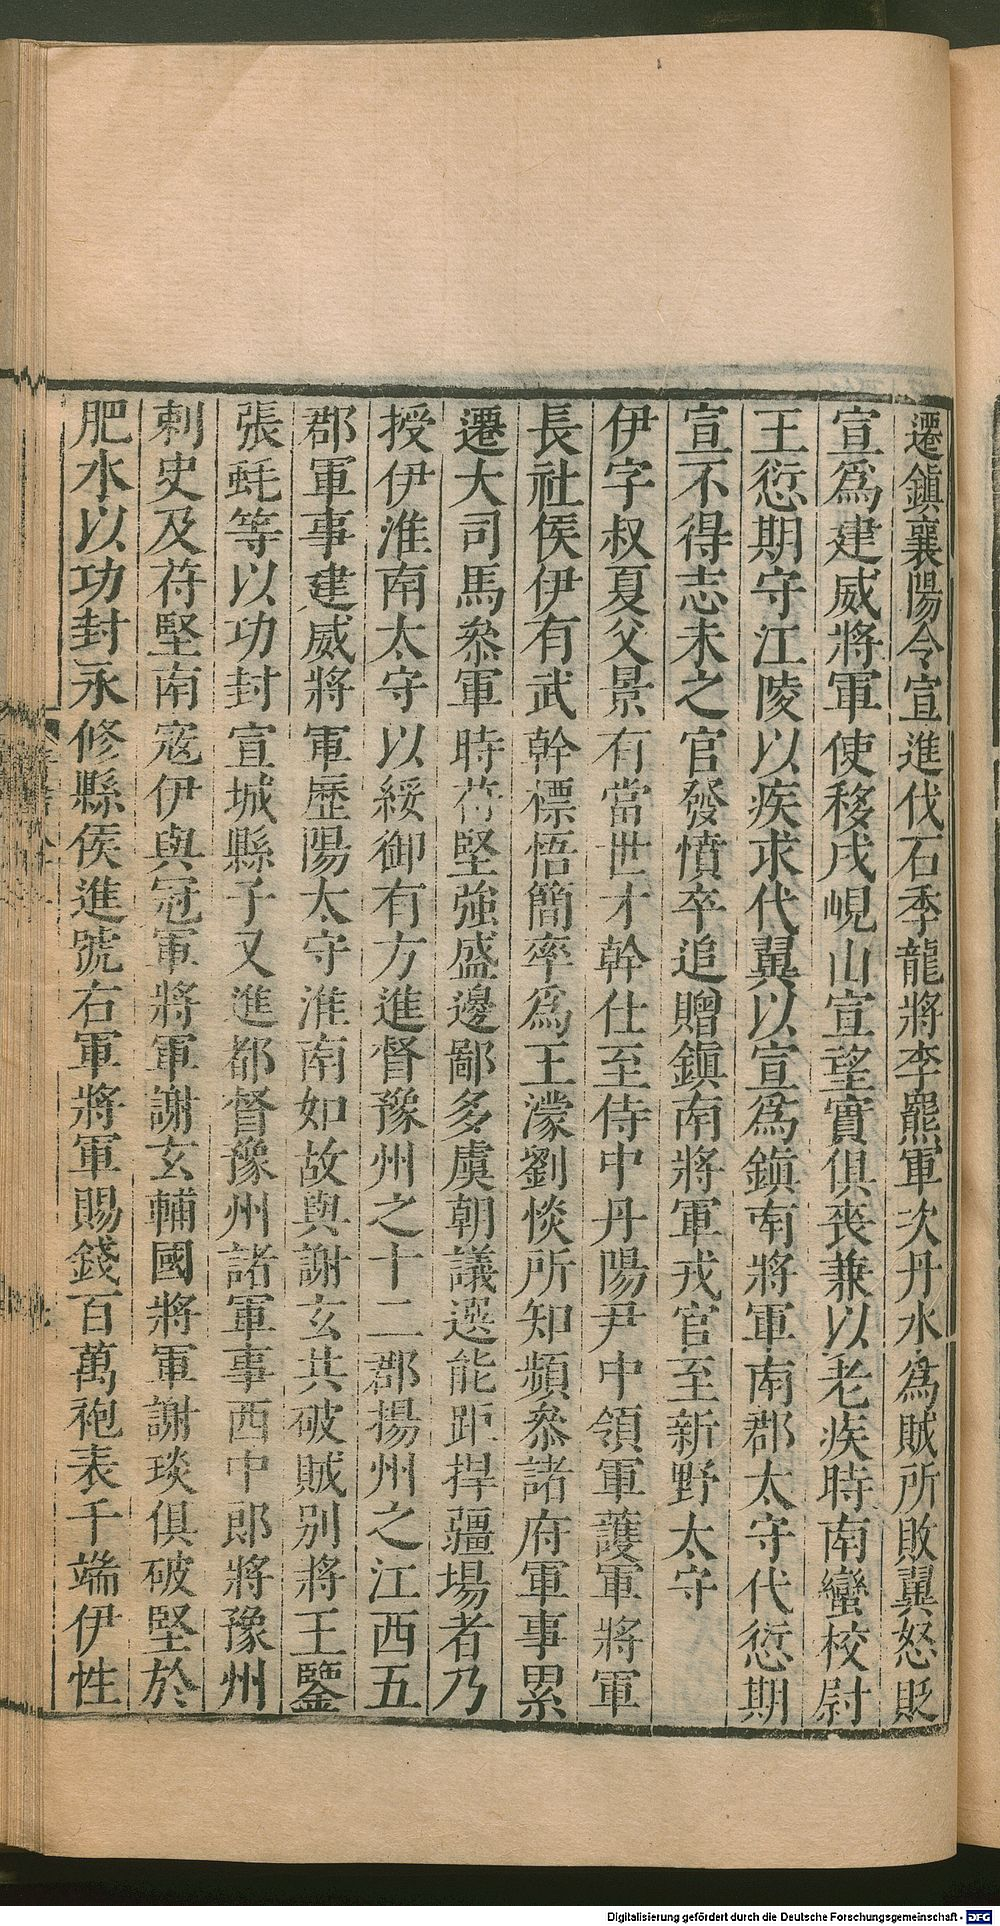 遷鎮襄陽令宣進伐石季龍將李羆軍次丹水爲賊所敗翼怒貶
宣爲建威將軍使移戍峴山宣望實俱喪兼以老疾時南蠻校尉
王愆期守江陵以疾求代翼以宣爲鎮南將軍南郡太守代愆期
宣不得志未之官發憤卒追贈鎮南將軍戎官至新野太守
伊字叔夏父景有當世才幹仕至侍中丹陽尹中領軍護軍將軍
長社侯伊有武幹標悟簡率爲王濛劉惔所知頻叅諸府軍事累
遷大司馬叅軍時苻堅強盛邊鄙多虞朝議選能距捍疆場者乃
授伊淮南太守以綏御有方進督豫州之十二郡揚州之江西五
郡軍事建威將軍歷陽太守淮南如故與謝玄共破賊别將王鑒
張蚝等以功封宣城縣子又進都督豫州諸軍事西中郎將豫州
刺史及苻堅南寇伊與冠軍將軍謝玄輔國將軍謝琰俱破堅於
肥水以功封永修縣侯進號右軍將軍賜錢百萬袍表千端伊性
Digitalisierung gefördert durch die Deutsche Forschungsgemeinschaft - DFG